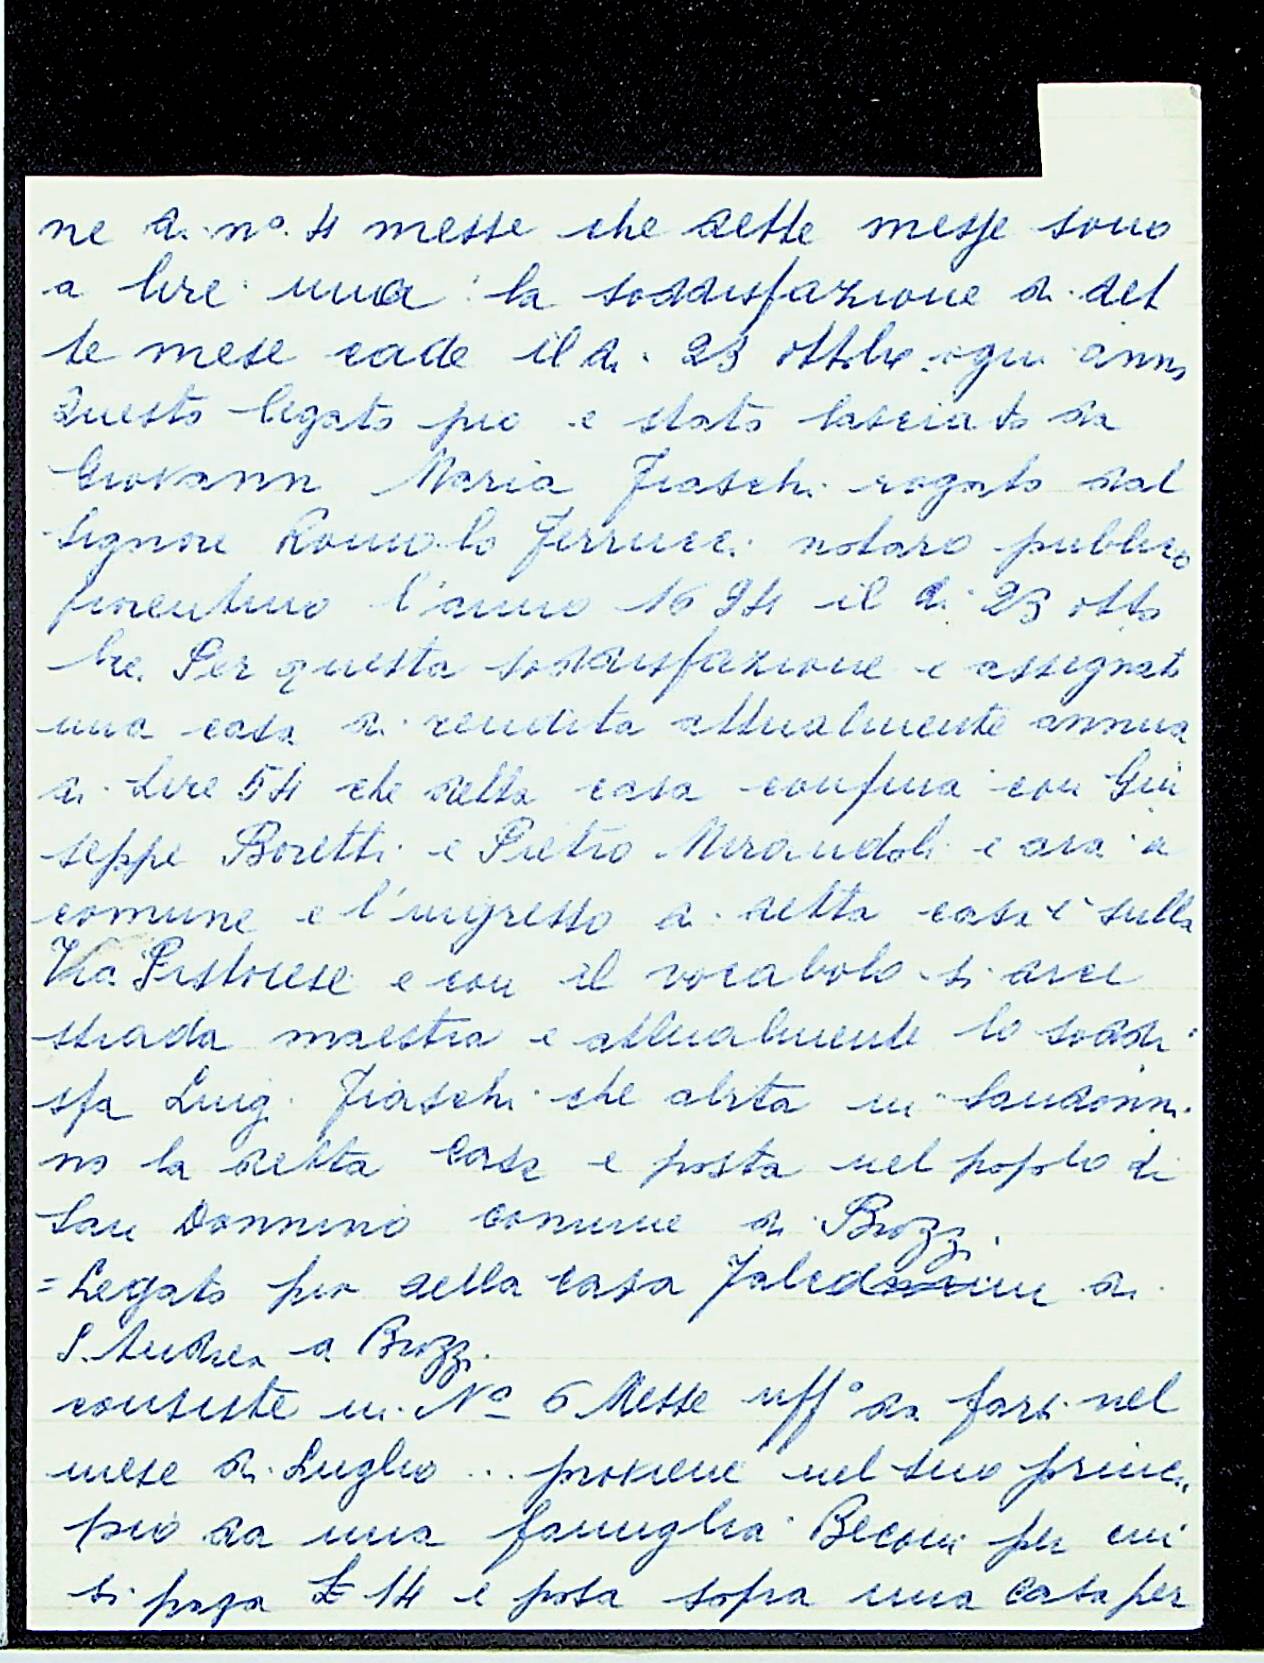 ne di n.º 4 messe che dette messe sono
a lire una : la soddisfazione di det
te mese cade il di 23 ottbre ogni anno
Questo legato pio e stato lasciato da
Giovann Maria Fiaschi rogato dal
signore Romolo Ferrucci notaro pubblico
fiorentino l'anno 1694 il di 23 otto
bre. Per questa soddisfazione e assegnato
una casa di rendita attualmente annua
di Lire 54 che detta casa confina con Giu
seppe Boretti e Pietro Mirandoli e aia a
comune e l'ingresso di detta casa è sulla
Via Pistoiese e con il vocabolo si dice
strada maestra e attualmente lo soddi
sfa Luigi Fiaschi che abita in Sandonni
no la detta casa e posta nel popolo di
San Donnino comune di Brozzi.
= Legato pio della casa di
S. Andrea a Brozzi.
consiste in Nº 6 Messe uff° da farsi nel
mese di Luglio ... proviene nel suo princi
pio da una famiglia Beconi per cui
si paga £ 14 e posa sopra una casa per